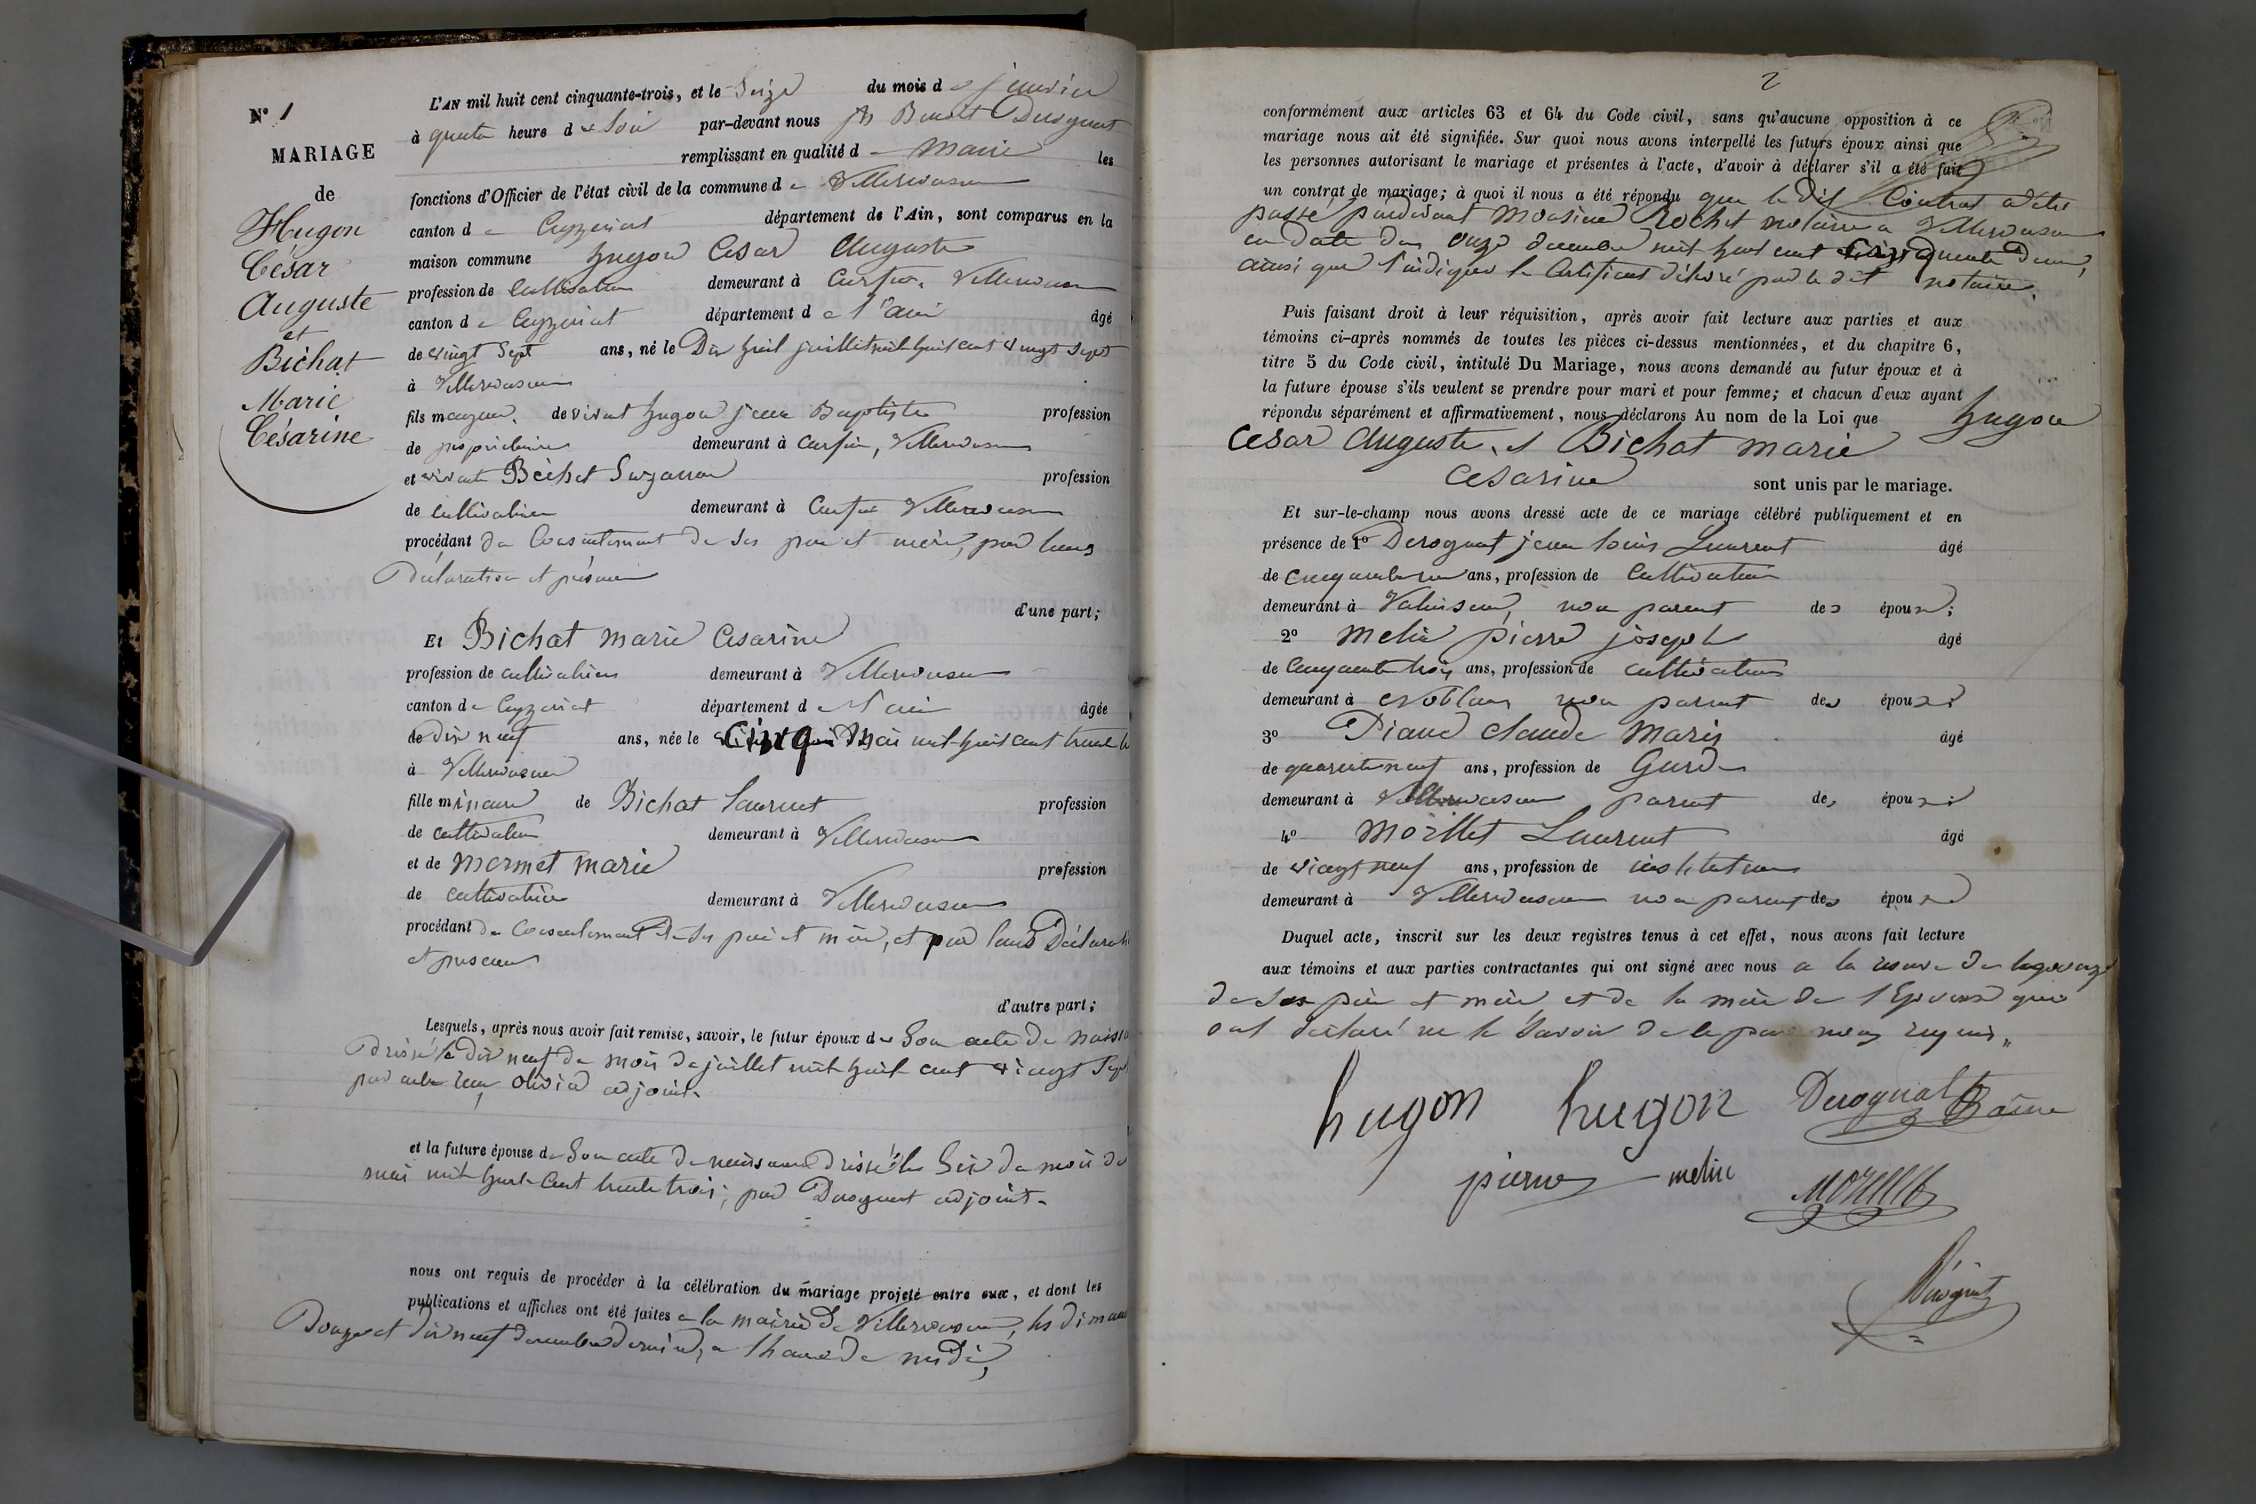 N° 1
MARIAGE
de
Hugon
César
Auguste
et
Bichat
Marie
Césarine
L'AN mil huit cent cinquante-trois, et le Seize du mois de janvier
à quatre heure du Soir par-devant nous Benoit Derognat
remplissant en qualité de Maire les
fonctions d'Officier de l'état civil de la commune de Villereversure
canton de Ceyzeriat département de l'Ain, sont comparus en la
maison commune hugon Cesar Auguste
profession de Cultivateur demeurant à Villereversure
canton de Ceyzeriat département de l'ain âgé
de vingt Sept ans, né le Dix huit juillet mil huit cent vingt Sept
à Villereversure
fils majeur de vivant hugon jean Baptiste profession
de propriétaire demeurant à Villereversure
et vivante Bichat Suzanne profession
de Cultivatrice demeurant à Villereversure
procédant du Consentement de Ses père et mère, par leurs
Déclaration et présence
d'une part;
Et Bichat marie Cesarine
profession de cultivatrice demeurant à Villereversure
canton de Ceyzeriat département de l'ain âgée
de dix neuf ans, née le Cinq Mai mil huit cent trente
à Villereversure
fille mineure de Bichat Laurent profession
de cultivateur demeurant à Villereversure
et de Mermet marie profession
de cultivatrice demeurant à Villereversure
procédant du Consentement de Ses père et mère, et par leurs Déclaration
et présence
d'autre part;
Lesquels, après nous avoir fait remise, savoir, le futur époux de Son acte de naissance
Dressé le dix neuf du mois de juillet mil huit cent vingt Sept
par olivier adjoint.
et la future épouse de Son acte de naissance Dressé le Six du mois de
mai mil huit Cent trente trois; par Derognat adjoint.
nous ont requis de procéder à la célébration du mariage projeté entre eux, et dont les
publications et affiches ont été faites a la mairie de Villereversure, les dimanches
Douze et dix neuf decembre dernier, a l'heure de midi,
2
conformément aux articles 63 et 64 du Code civil, sans qu'aucune opposition à ce
mariage nous ait été signifiée. Sur quoi nous avons interpellé les futurs époux ainsi que
les personnes autorisant le mariage et présentes à l'acte, d'avoir à déclarer s'il a été fait
un contrat de mariage; à quoi il nous a été répondu que le dit Contrat a été
passé pardevant Monsieur Rochet notaire a Villereversure
en date du onze decembre mil huit cent Cinquante Deux,
ainsi que l'indique le Certificat délivré par le dit notaire.
Puis faisant droit à leur réquisition, après avoir fait lecture aux parties et aux
témoins ci-après nommés de toutes les pièces ci-dessus mentionnées, et du chapitre 6,
titre 5 du Code civil, intitulé Du Mariage, nous avons demandé au futur époux et à
la future épouse s'ils veulent se prendre pour mari et pour femme; et chacun d'eux ayant
répondu séparément et affirmativement, nous déclarons Au nom de la Loi que hugon
Cesar Auguste et Bichat marie
Cesarine sont unis par le mariage.
Et sur-le-champ nous avons dressé acte de ce mariage célébré publiquement et en
présence de 1° Derognat jean louis Laurent âgé
de ans, profession de Cultivateur
demeurant à non parent des époux;
2° Melin pierre joseph âgé
de Cinquante trois ans, profession de cultivateur
demeurant à Noblens non parent des époux;
3° Piaud claude Marin âgé
de quarante neuf ans, profession de Garde
demeurant à Villereversure parent des époux;
4° Moillet Laurent âgé
de vingt neuf ans, profession de instituteur
demeurant à Villereversure non parent des époux
Duquel acte, inscrit sur les deux registres tenus à cet effet, nous avons fait lecture
aux témoins et aux parties contractantes qui ont signé avec nous a la reserve de
de Ses père et mère et de la mère de l'Epouse qui
ont déclaré ne le Savoir de ce par nous requis
hugon hugon Derognat
pierre melin
Derognat